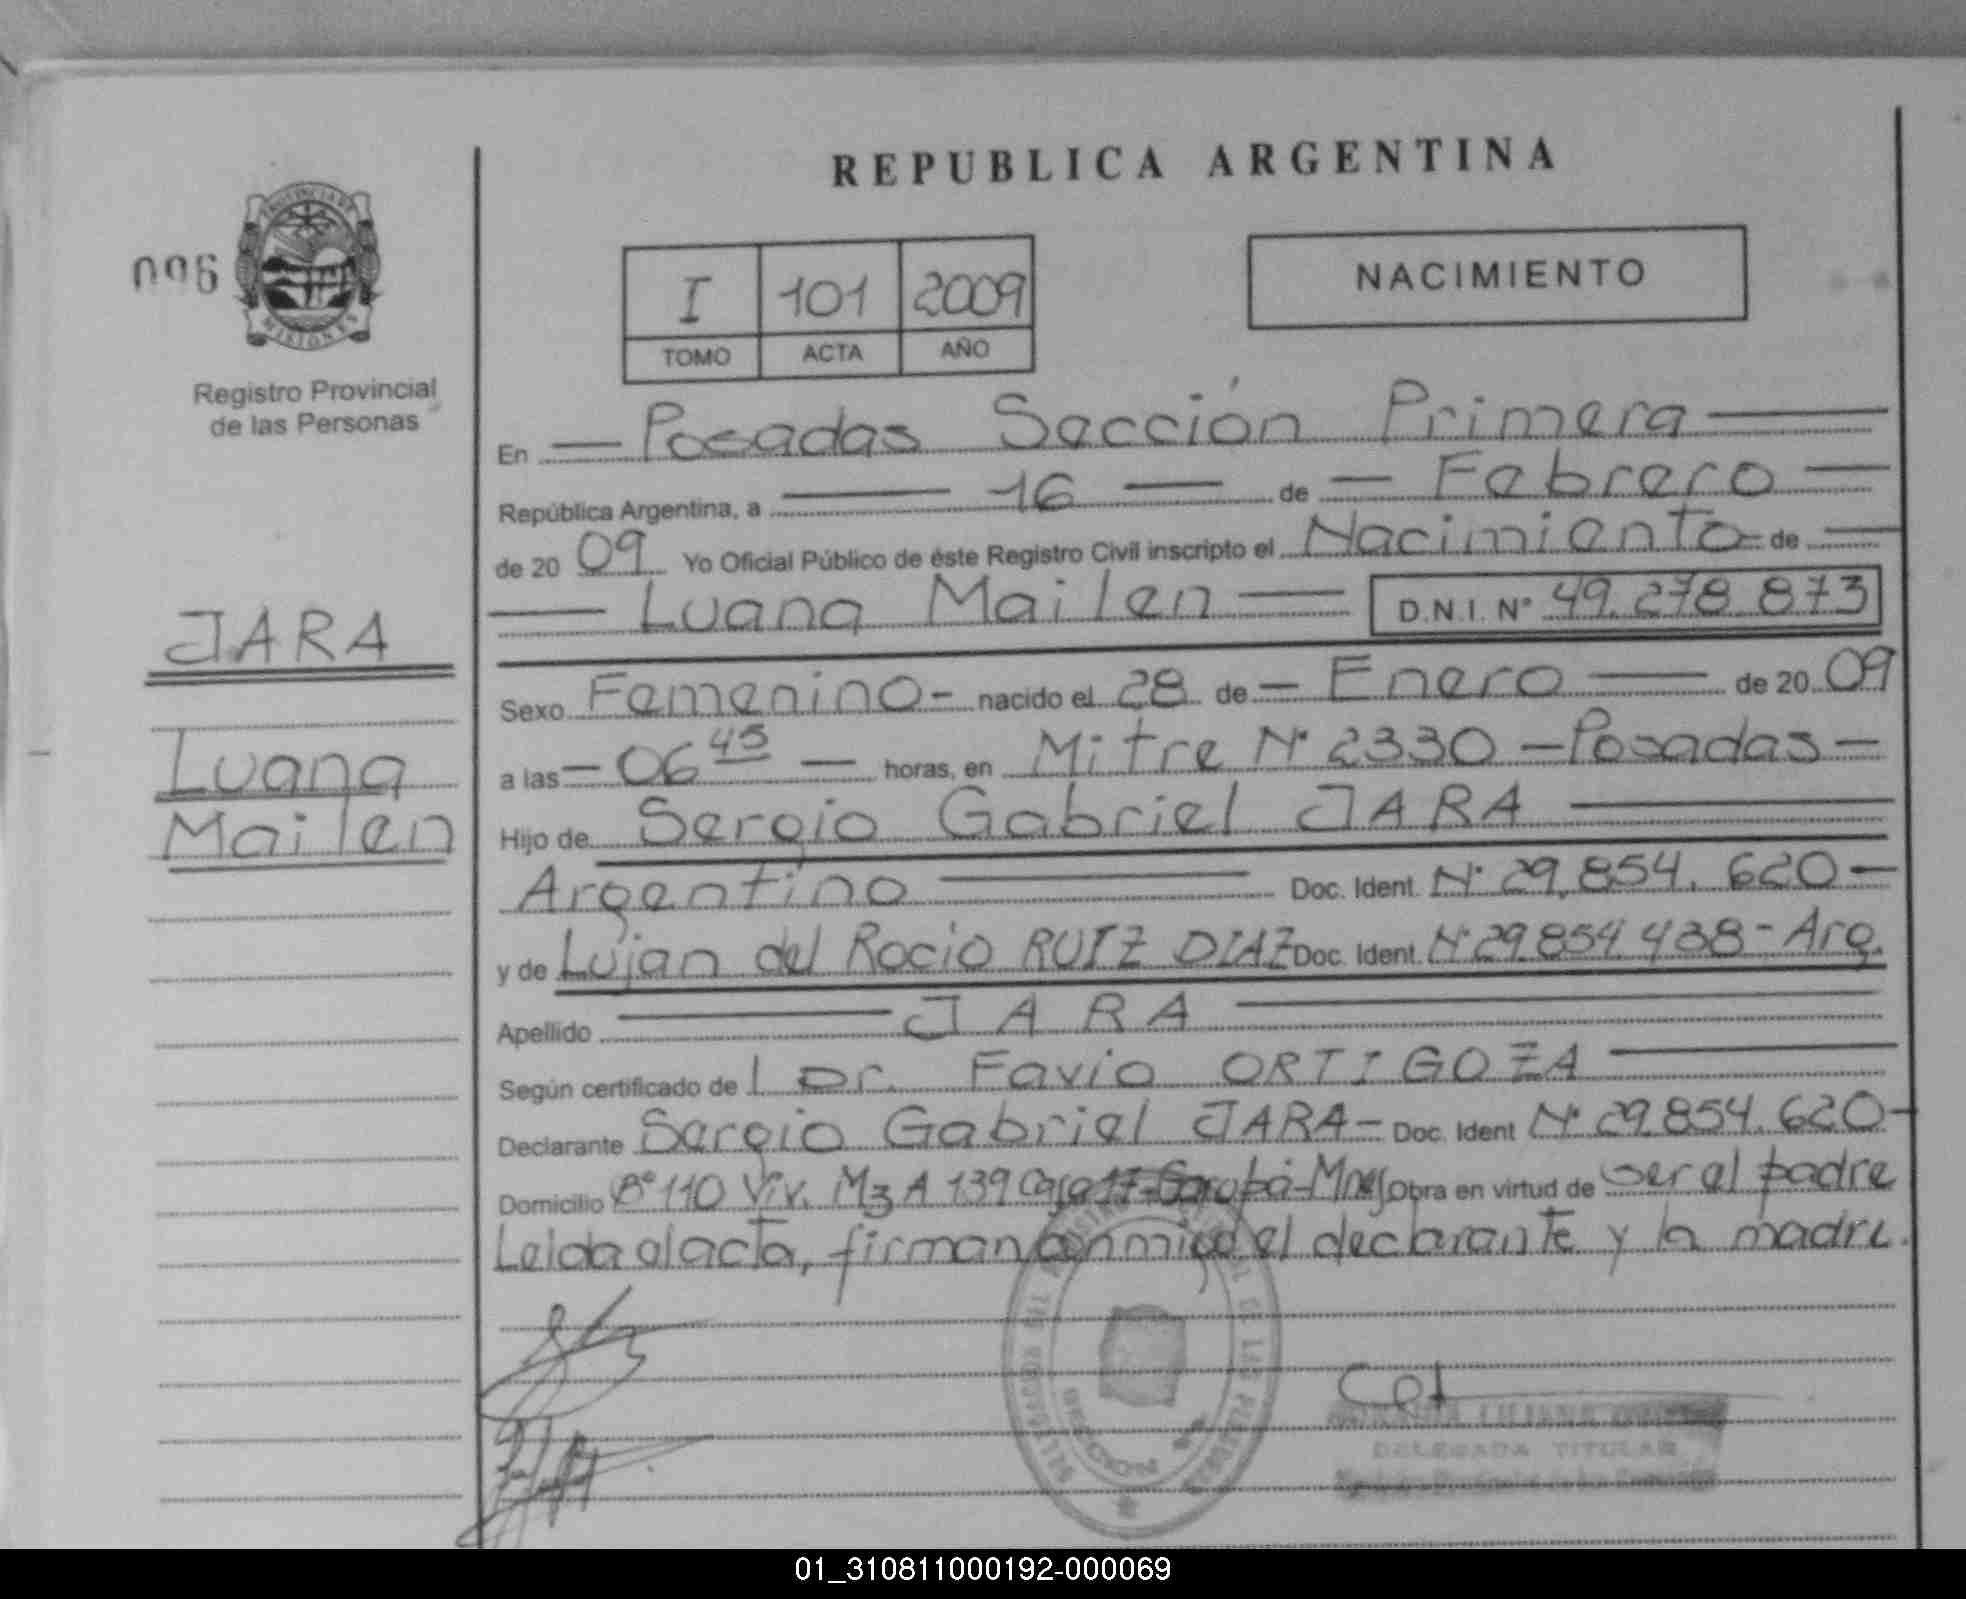 REPUBLICA ARGENTINA
096
PROVINCIA DE
MISIONES
Registro Provincial
de las Personas
I 101 2009
TOMO ACTA AÑO
NACIMIENTO
En Posadas Sección Primera
República Argentina, a 16 de Febrero
de 20 09 Yo Oficial Público de éste Registro Civil inscripto el Nacimiento de
Luana Mailen D.N.I. Nº 49.278.873
JARA
Luana
Mailen
Sexo Femenino - nacido el 28 de Enero de 20 09
a las 06 45 horas, en Mitre Nº 2330 - Posadas -
Hijo de Sergio Gabriel JARA
Argentino Doc. Ident. Nº 29.854.620 -
y de Lujan del Rocio RUIZ DIAZ Doc. Ident. Nº 29.854.438 - Arg.
Apellido JARA
Según certificado de Dr. Favio ORTIGOZA
Declarante Sergio Gabriel JARA - Doc. Ident Nº 29.854.620 -
Domicilio Bº 110 Viv. Mz A 139 Casa 17 - Garupá - Mnes Obra en virtud de ser el padre
Leida el acta, firman conmigo el declarante y la madre.
LILIANA
DELEGADA TITULAR
01_310811000192-000069